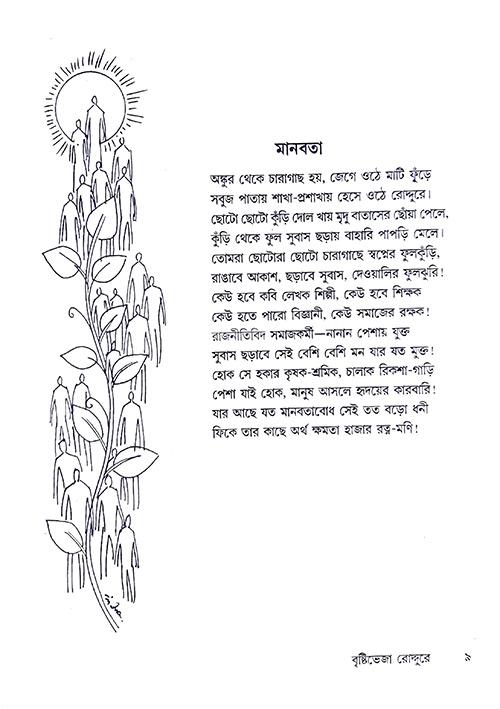 মানবতা
অঙ্কুর থেকে চারাগাছ হয়, জেগে ওঠে মাটি ফুঁড়ে
সবুজ পাতায় শাখা-প্রশাখায় হেসে ওঠে রোদ্দুরে।
ছোটো ছোটো কুঁড়ি দোল খায় মৃদু বাতাসের ছোঁয়া পেলে,
কুঁড়ি থেকে ফুল সুবাস ছড়ায় বাহারি পাপড়ি মেলে।
তোমরা ছোটোরা ছোটো চারাগাছে স্বপ্নের ফুলকুঁড়ি,
রাঙাবে আকাশ, ছড়াবে সুবাস, দেওয়ালির ফুলঝুরি!
কেউ হবে কবি লেখক শিল্পী, কেউ হবে শিক্ষক
কেউ হতে পারো বিজ্ঞানী, কেউ সমাজের রক্ষক!
রাজনীতিবিদ সমাজকর্মী—নানান পেশায় যুক্ত
সুবাস ছড়াবে সেই বেশি বেশি মন যার যত মুক্ত!
হোক সে হকার কৃষক-শ্রমিক, চালাক রিকশা-গাড়ি
পেশা যাই হোক, মানুষ আসলে হৃদয়ের কারবারি!
যার আছে যত মানবতাবোধ সেই তত বড়ো ধনী
ফিকে তার কাছে অর্থ ক্ষমতা হাজার রত্ন-মণি!
বৃষ্টিভেজা রোদ্দুরে ৯